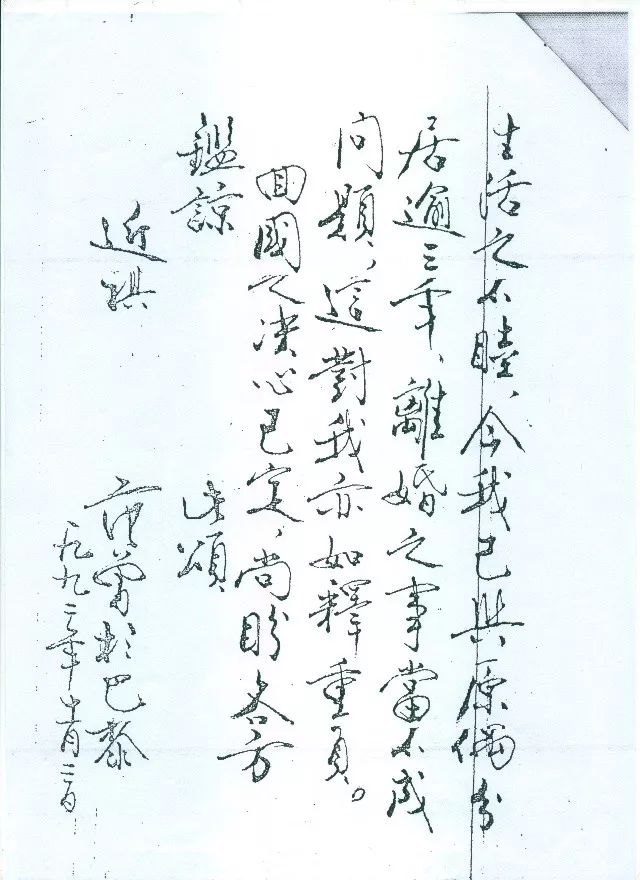 生活之不睦、今我已與原偶分
居逾三年、離婚之事當不成
問題、這對我亦如釋重負。
回國之決心已定、尚盼各方
鑑諒 此頌
近祺
范曾於巴黎
一九九二年